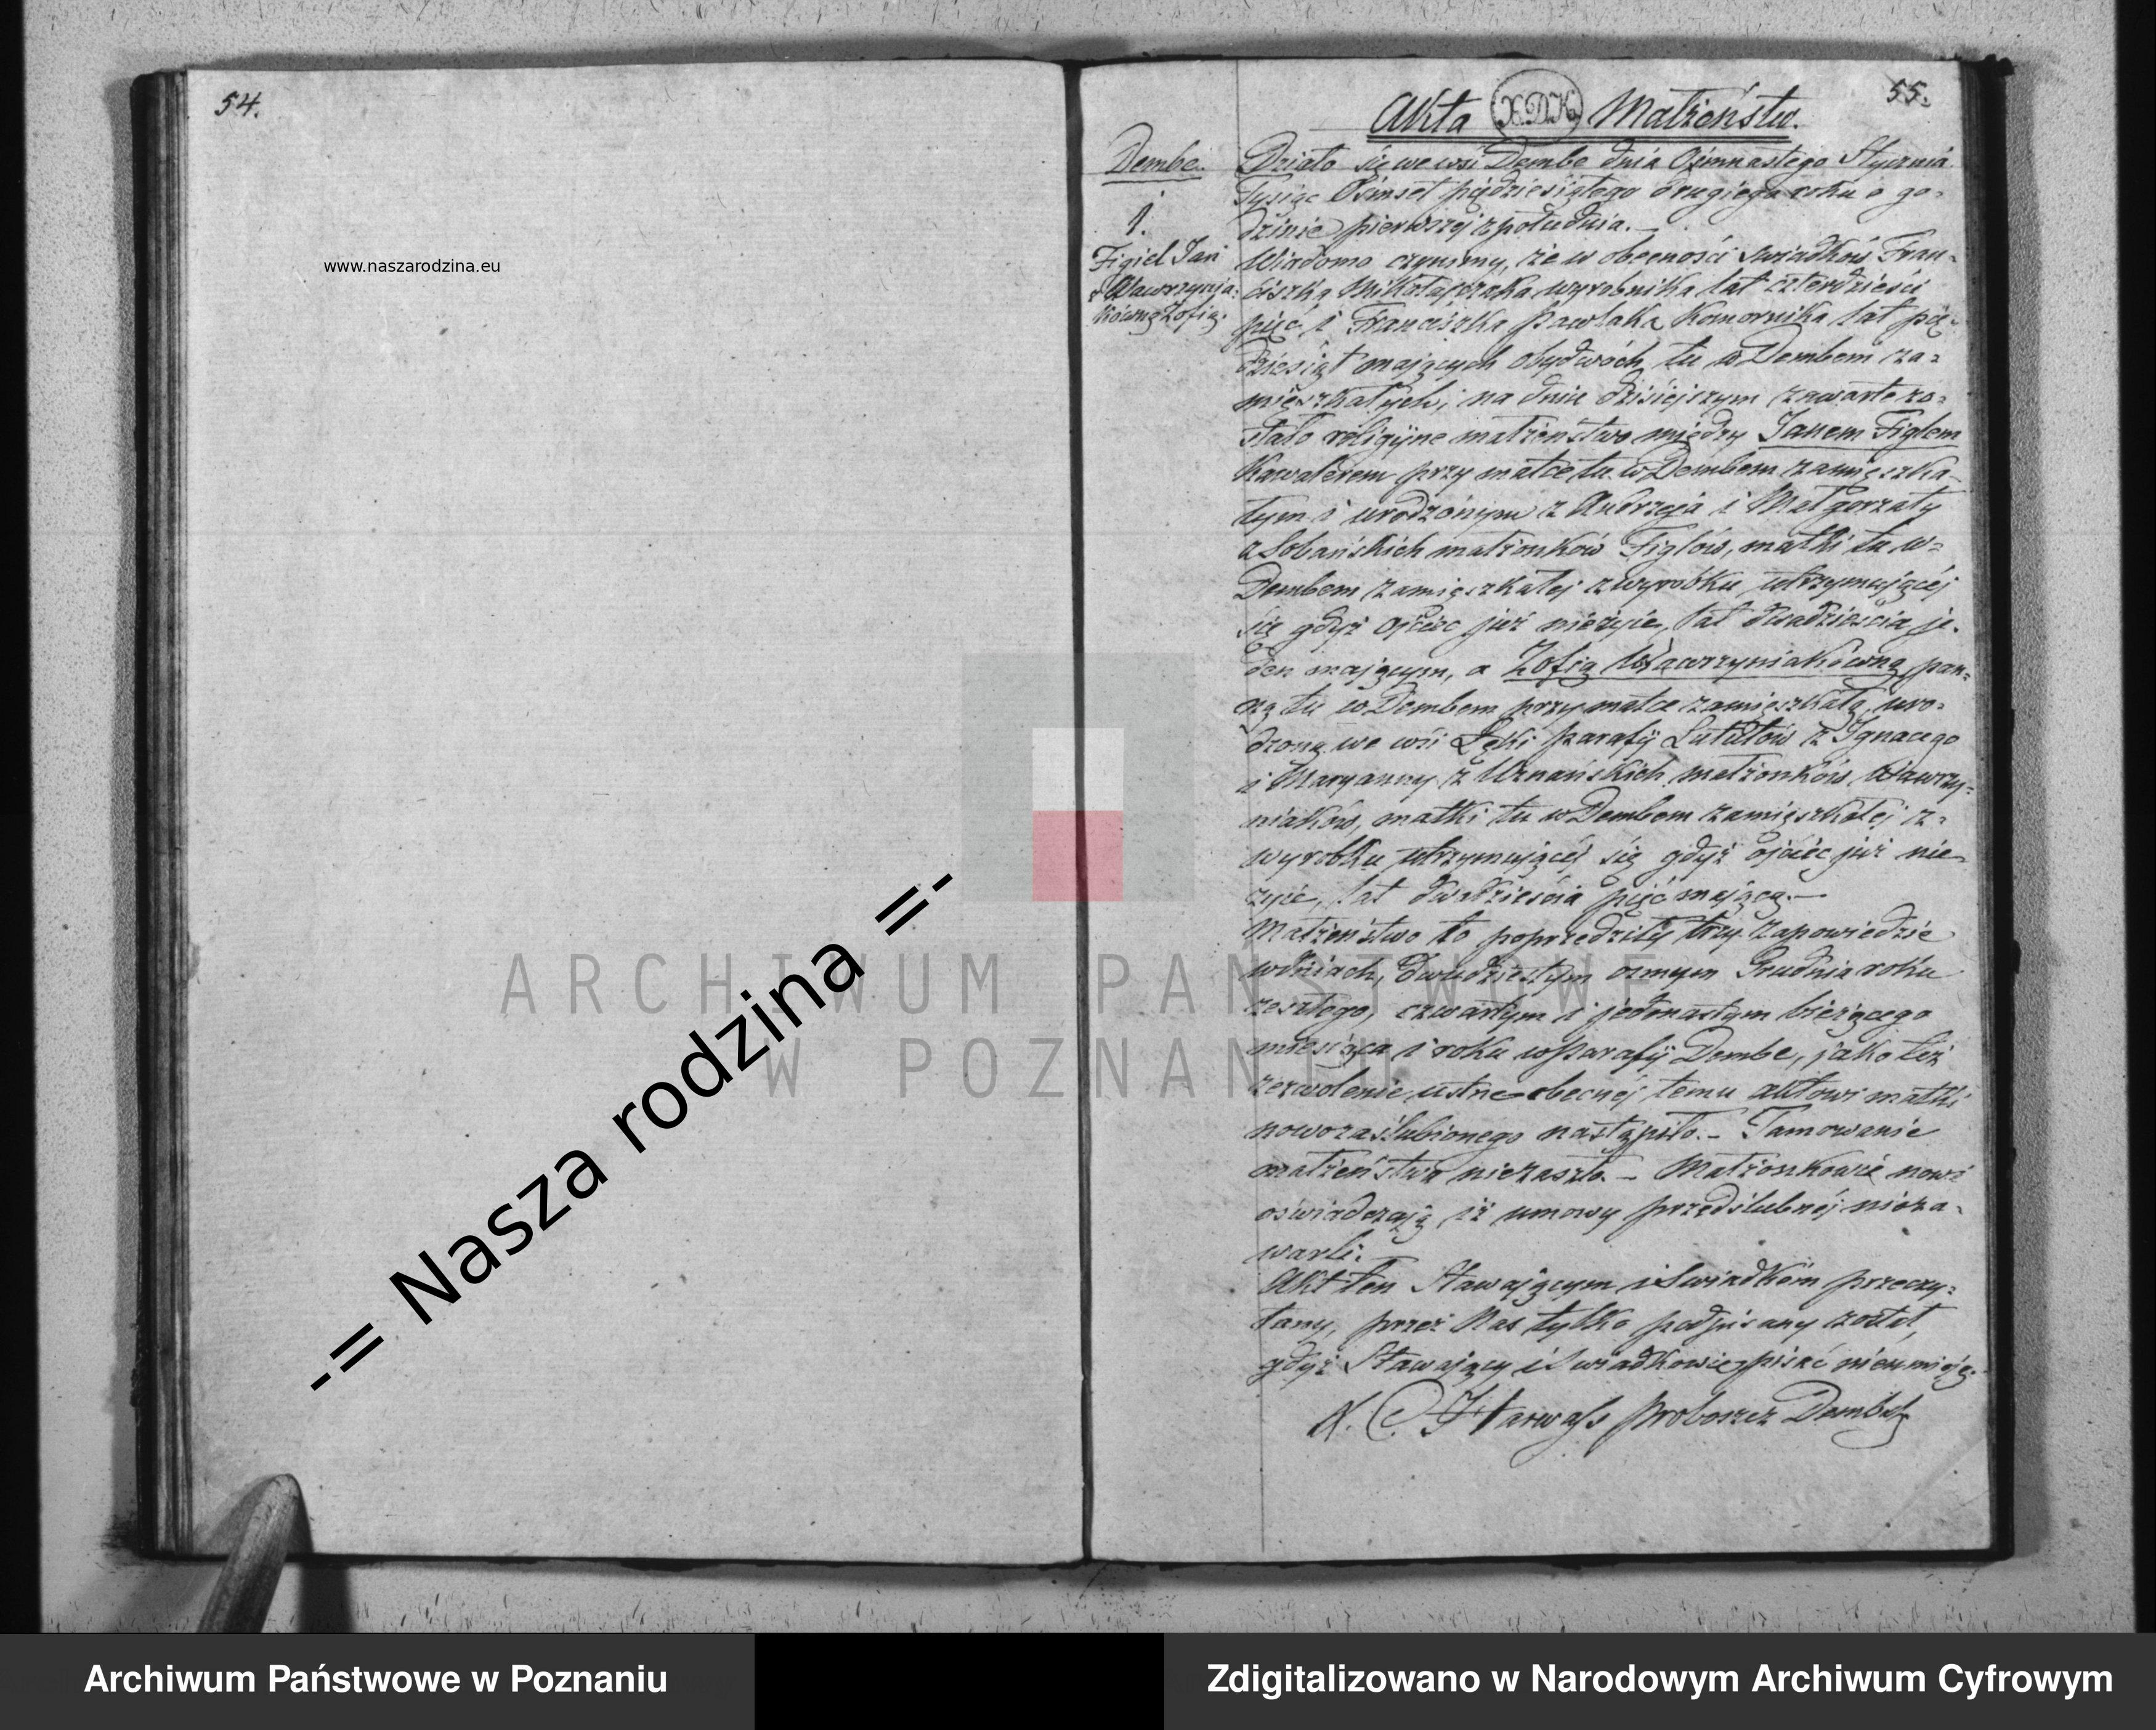 54.
www.naszarodzina.eu
-= Nasza rodzina =-
55.
Akta X.D.K. Małżeństw.
Dembe.
1.
Figiel Jan
z Wawrzynia-
kówną Zofią.
Działo się we wsi Dembe dnia Ośmnastego Stycznia
Tysiąc Ośmset pięćdziesiątego drugiego roku o go-
dzinie pierwszej z południa. —
Wiadomo czynimy, że w obecności świadków Fran-
ciszka Mikołajczaka wyrobnika lat czterdzieści
pięć i Franciszka Pawlaka Komornika lat pię-
dziesiąt mających obydwóch tu w Dembem za-
mięszkałych, na dniu dzisiejszym zawarte zo-
stało religijne małżeństwo między Janem Figlem
Kawalerem przy matce tu w Dembem zamięszka-
łym i urodzonym z Andrzeja i Małgorzaty
z Sobańskich małżonków Figlów, matki tu w-
Dembem zamięszkałej z wyrobku utrzymującéj
się gdyż ojciec już nieżyie, lat dwadzieścia je-
den mającym, a Zofią Wawrzyniakówną pan-
ną tu w Dembem przy matce zamięszkałą, uro-
dzoną we wsi Łęki parafij Lututów z Ignacego
i Maryanny z Uznańskich małżonków Wawrzy-
niaków, matki tu w Dembem zamięszkałej z-
wyrobku utrzymującéj się gdyż ojciec już nie-
żyie, lat dwadzieścia pięć mającą. —
Małżeństwo to poprzedziły trzy zapowiedzie
w dniach, dwudziestym osmym Grudnia roku
zeszłego, czwartym i jedenastym bieżącego
miesiąca i roku w Parafij Dembe, jako też
zezwolenie ustne obecnéj temu aktowi matki
nowozaślubionego nastąpiło. — Tamowanie
małżeństwa niezaszło. — Małżonkowie nowi
oświadczają iż umowy przedślubnéj nieza-
warli.
Akt ten Stawającym i Swiadkom przeczy-
tany, przez Nas tylko podpisany został,
gdyż Stawający i Swiadkowie pisać nieumieją.
Proboszcz Dembski
ARCHIWUM PAŃSTWOWE
W POZNANIU
Archiwum Państwowe w Poznaniu
Zdigitalizowano w Narodowym Archiwum Cyfrowym